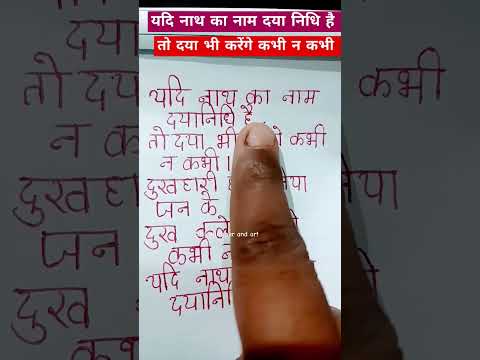 यदि नाथ का नाम दया निधि है
तो दया भी करेंगे कभी न कभी
यदि नाथ का नाम
दयानिधि है
तो दया भी कभी
न कभी।
दुखहारी
जन के
दुख
and art
कभी
यदि नाथ